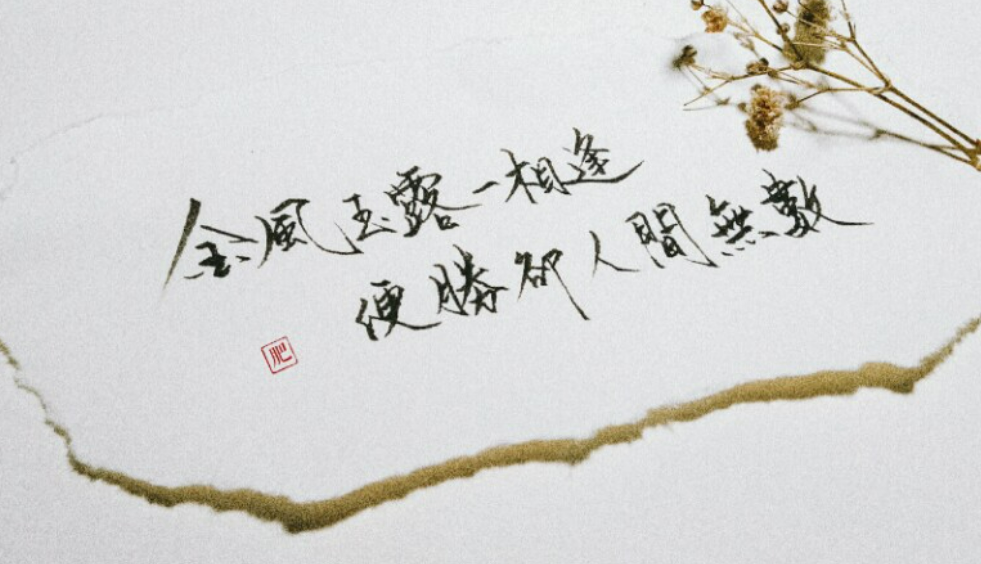 金風玉露一相逢
便勝卻人間無數
肥